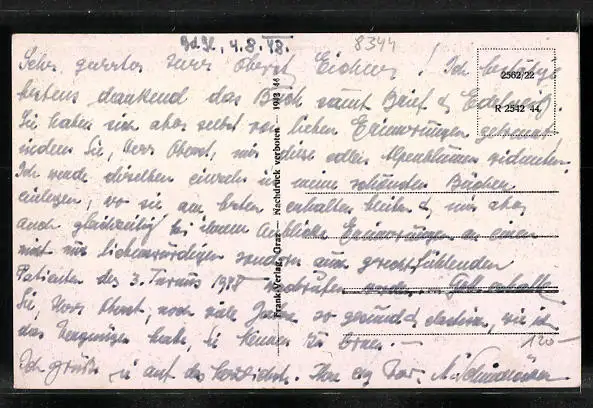 Bd. Jl., 4. 8. 48.
8344
Sehr geehrter Herr Oberst Eichner! Ich bestätige
bestens dankend das Buch samt Brief & Edelweiß.
Sie haben sich also selbst von lieben Erinnerungen getrennt,
indem Sie, Herr Oberst, mir diese edlen Alpenblumen widmeten.
Ich werde dieselben einzeln in meine schönsten Bücher
einlegen, wo sie am besten erhalten bleiben & mir also
auch gleichzeitig bei ihrem Anblicke Erinnerungen an einen
nicht nur liebenswürdigen sondern auch
Patienten des 3. Turnus 1948 wachrufen werden. Gott erhalte
Sie, Herr Oberst, noch viele Jahre so gesund & elastisch, wie ich
das Vergnügen hatte, Sie kennen zu lernen. —
Ich grüße Sie auf das herzlichste. Ihr erg.
120.—
2562/22
R 2542 44
Frank-Verlag, Graz — Nachdruck verboten — 1943/44